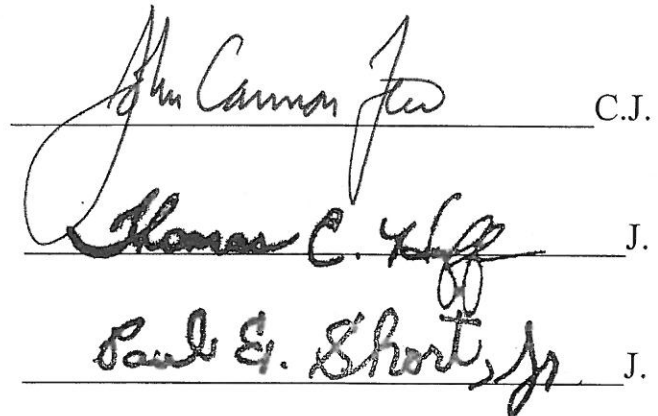 John Cannon Few C.J.
Thomas C. Huff J.
Paul E. Short, Jr. J.